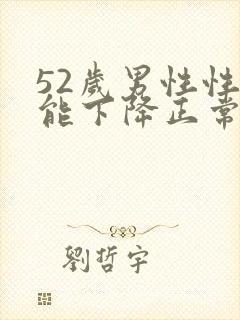 52歲男性性
能下降正常
劉哲宇